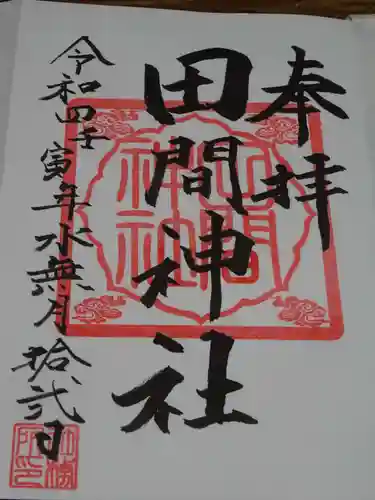 奉拝
田間神社
令和四壬寅年水無月拾弐日
田間神社